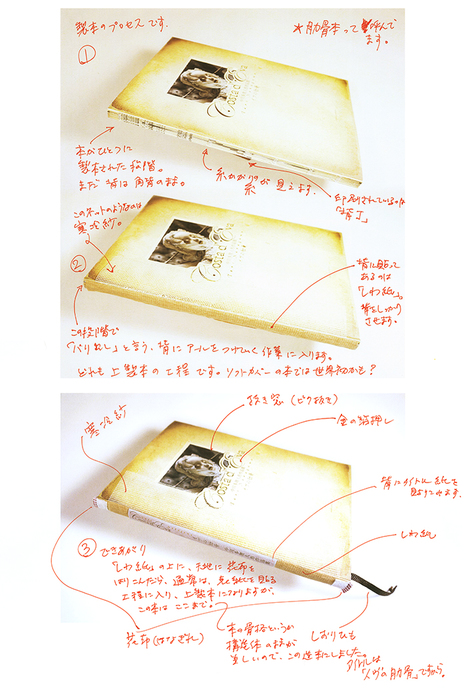 製本のプロセスです。
＊肋骨本って呼んで
ます。
①
本がひとつに
製本された段階。
まだ背は角背のまま。
糸かがりが見えます。
糸
印刷されているのは
「背丁」
このネットのようなのは
寒冷紗。
②
背に貼って
あるのは
「しわ紙」。
背をしっかり
させます。
この段階で
「バリ出し」と言う、背にアールをつけていく作業に入ります。
どれも上製本の工程です。ソフトカバーの本では世界初かも？
寒冷紗
抜き窓（ビク抜き）
金の箔押し
背にタイトル紙を
貼りこみます。
しわ紙
③できあがり
「しわ紙」の上に、天地に花布を
はりこんだら、通常は、見返しを貼る
工程に入り、上製本になりますが、
この本はここまで。
花布（はなぎれ）
本の骨格というか
構造体のさまが
美しいので、この造本にしました。
しおりひも
タイトルは
「イヴの肋骨」ですから。